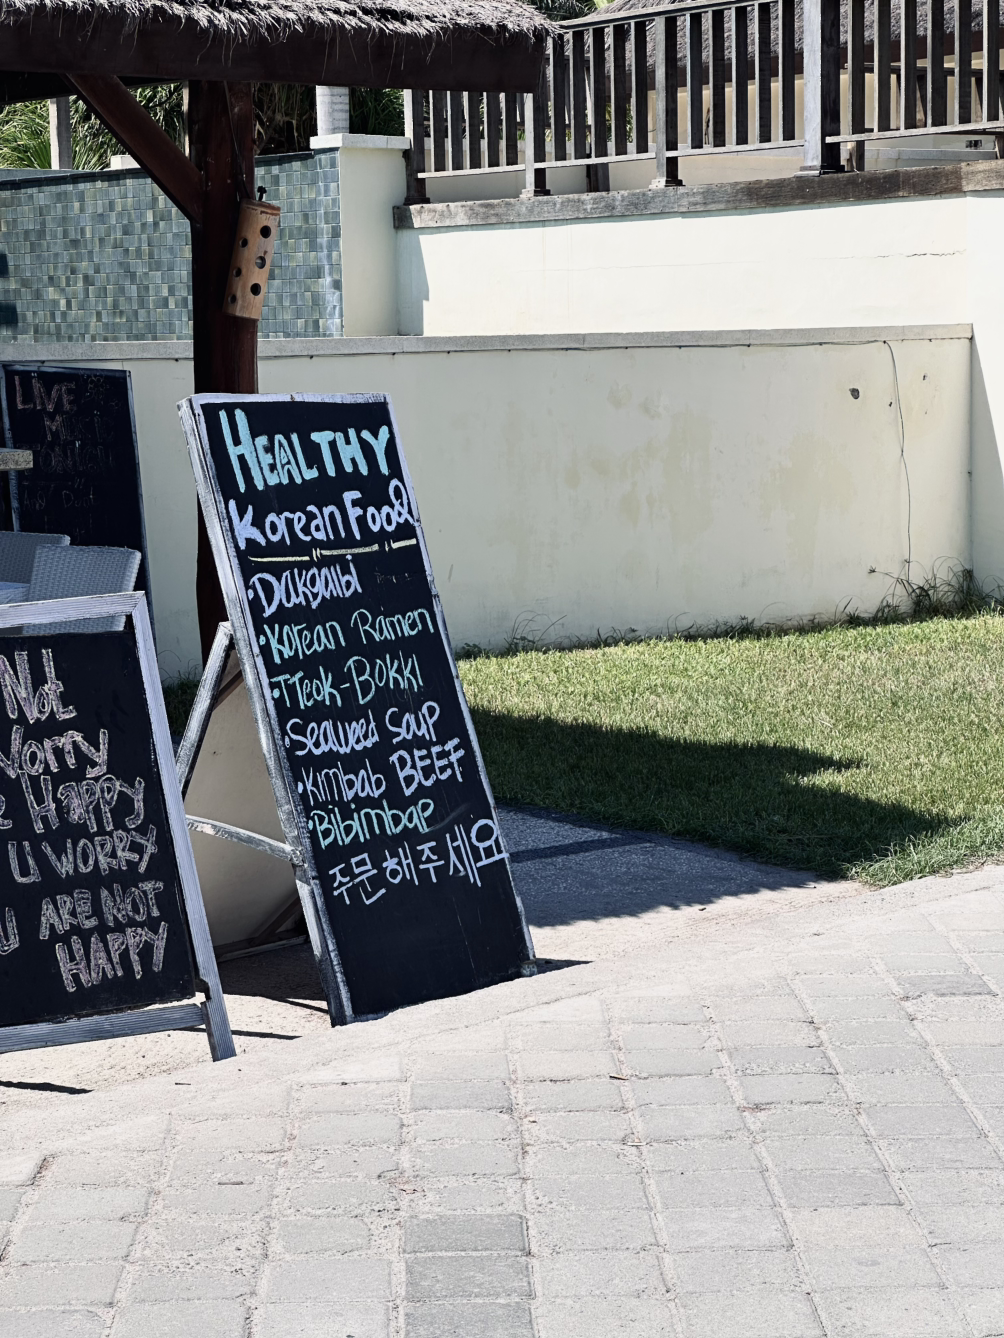 LIVE
HEALTHY
Korean Food
•Dakgalbi
•Korean Ramen
•TTeok-BOKKI
•Seaweed Soup
•Kimbab BEEF
•Bibimbap
주문해주세요
Not
Worry
Happy
U WORRY
U ARE NOT
HAPPY